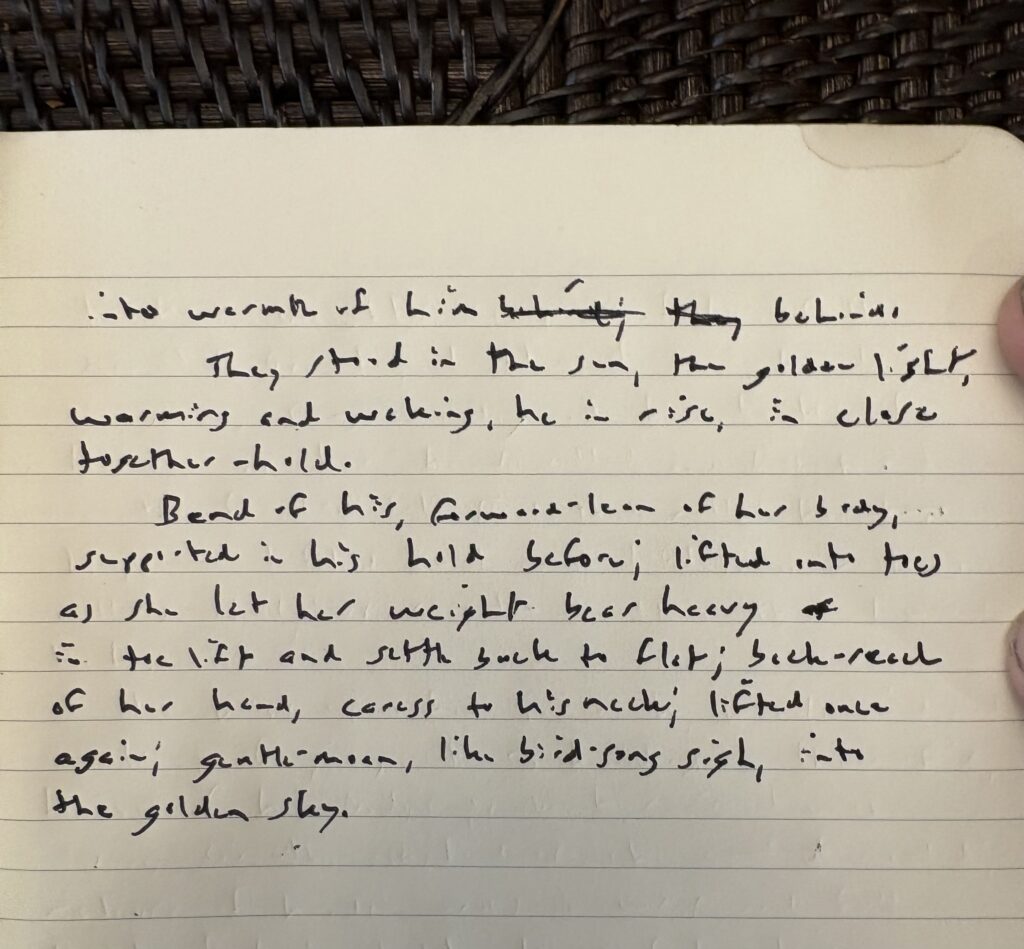 into warmth of him behind; they behind.
They stood in the sun, the golden light,
warming and waking, he in rise, in close
together-hold.
Bend of his, forward-lean of her body,
supported in his hold before; lifted onto toes
as she let her weight bear heavy
in toe lift and settle back to flat; back-reach
of her hand, caress to his neck; lifted once
again; gentle-moan, like bird-song sigh, into
the golden sky.